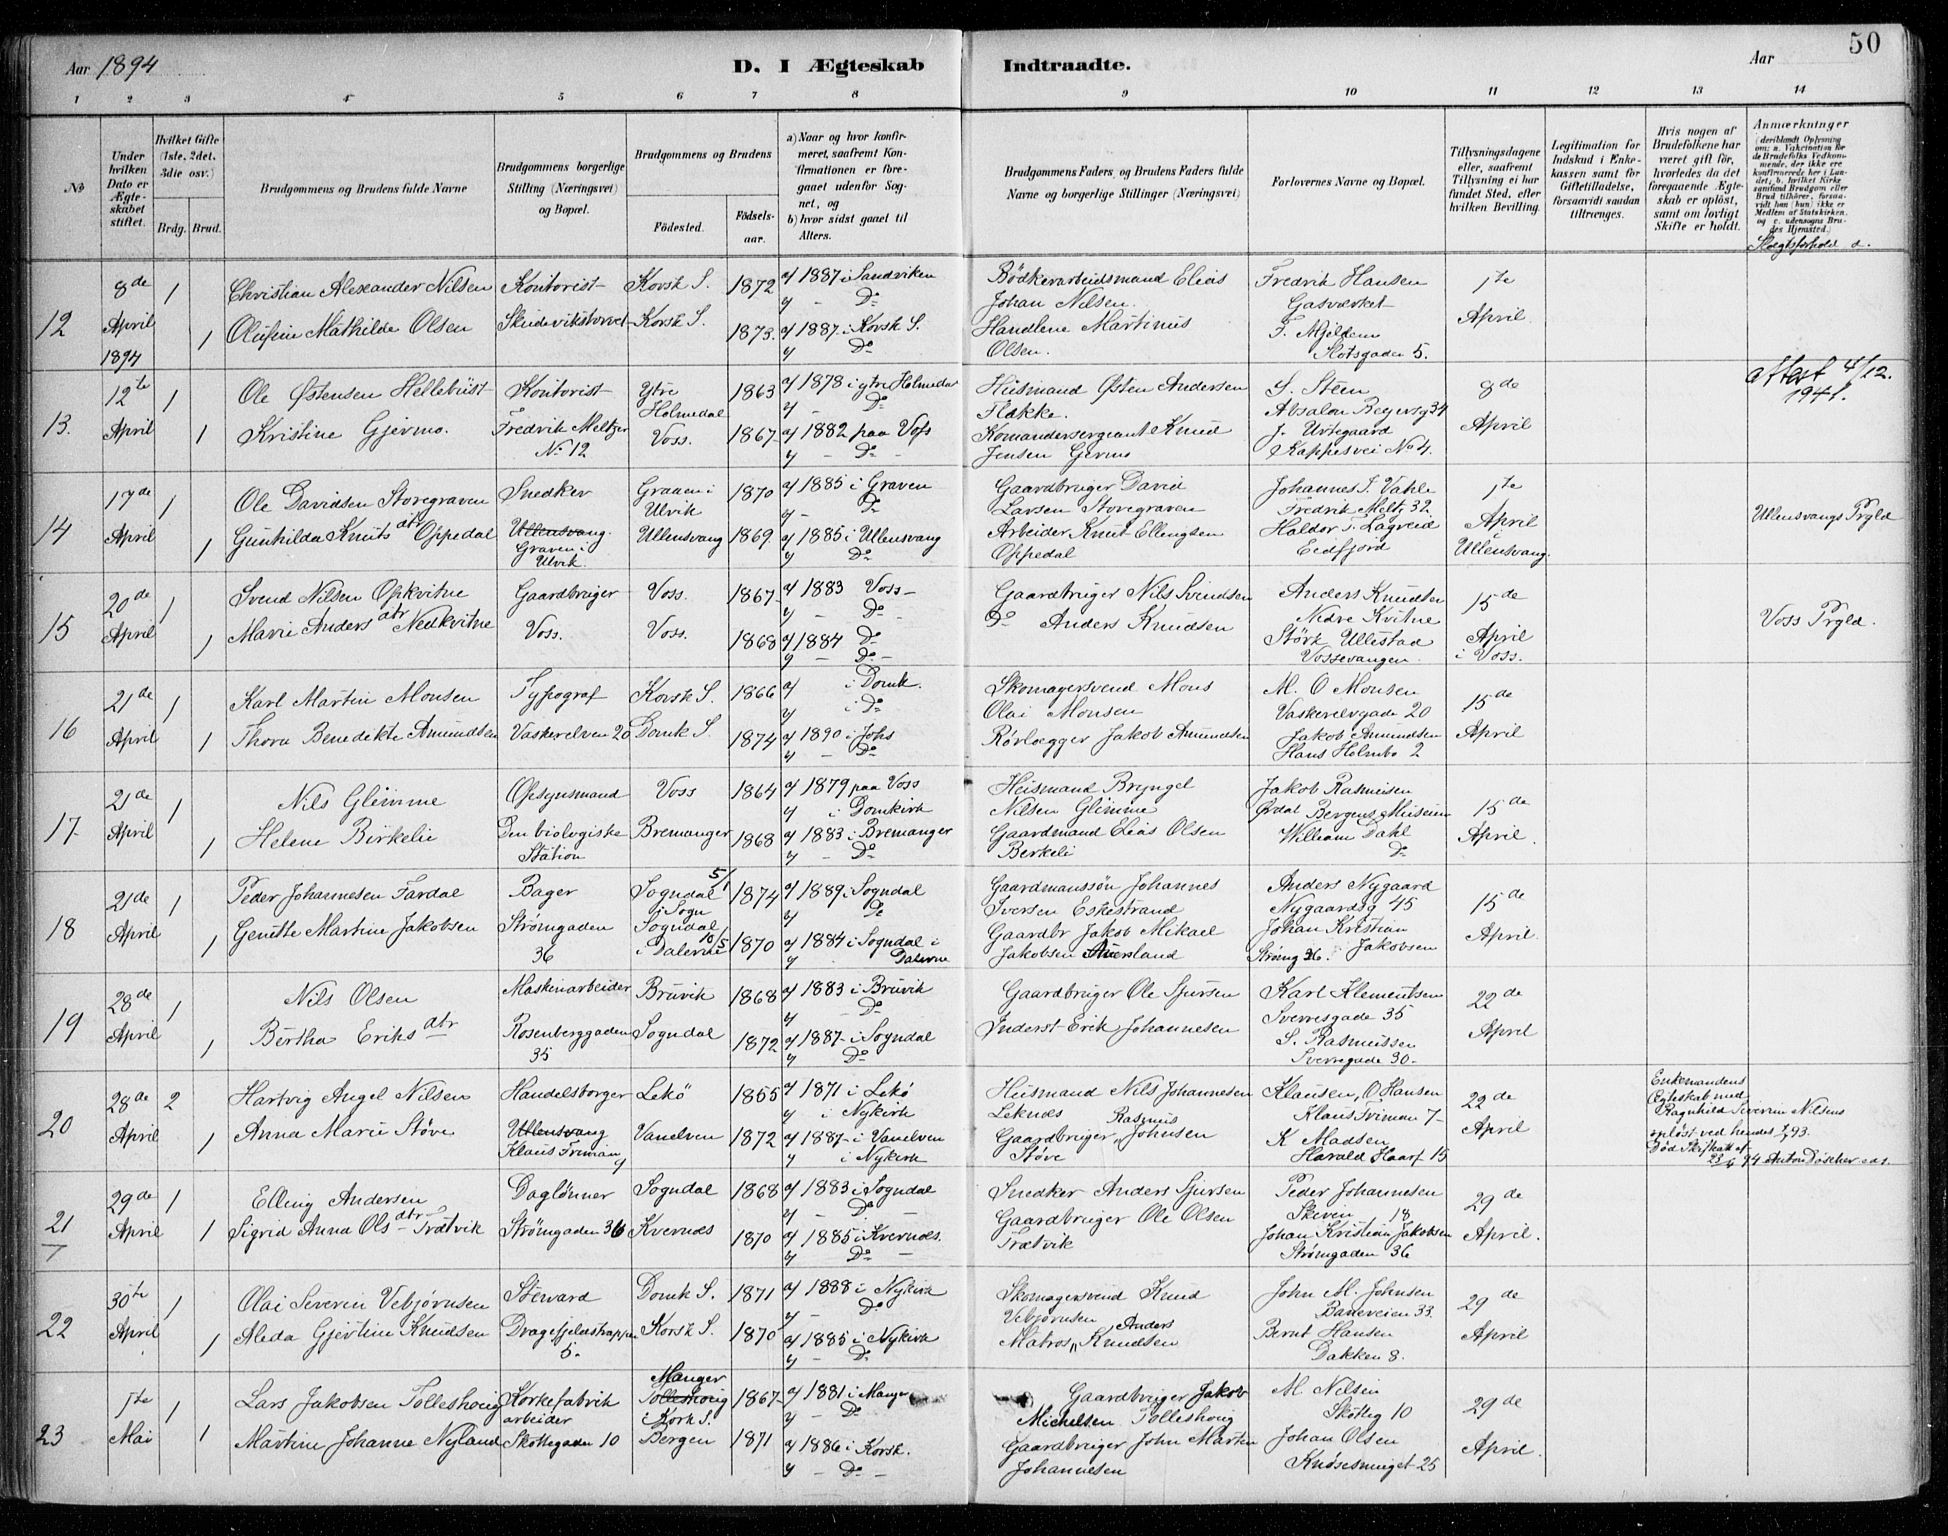 Aar 1894
D. I Ægteskab Indtraadte.
Aar
50
1 2 3 4 5 6 7 8 9 10 11 12 13 14
No
Under hvilken Dato er Ægteskabet stiftet.
Hvilket Gifte (1ste, 2det, 3die osv.)
Brdg. Brud.
Brudgommens og Brudens fulde Navne
Brudgommens borgerlige Stilling (Næringsvei) og Bopæl.
Brudgommens og Brudens
Fødested. Fødselsaar.
a) Naar og hvor konfirmeret, saafremt Konfirmationen er foregaaet udenfor Sognet, og
b) hvor sidst gaaet til Alters.
Brudgommens Faders, og Brudens Faders fulde Navne og borgerlige Stillinger (Næringsvei)
Forlovernes Navne og Bopæl.
Tillysningsdagene eller, saafremt Tillysning ei har fundet Sted, efter hvilken Bevilling.
Legitimation for Indskud i Enkekassen samt for Giftetilladelse, forsaavidt saadan tiltrænges.
Hvis nogen af Brudefolkene har været gift før, hvorledes da det foregaaende Ægteskab er opløst, samt om lovligt Skifte er holdt.
Anmærkninger
(deriblandt Oplysning om: a. Vakcination for de Brudefolks Vedkommende, der ikke ere konfirmerede her i Landet; b. hvilket Kirkesamfund Brudgom eller Brud tilhører, forsaavidt han (hun) ikke er Medlem af Statskirken, og c. udensogns Brudes Hjemsted.)
Slægtsforhold d.
12
8de April 1894
1
Christian Alexander Nilsen Kontorist Korsk S. 1872 a/ 1887 i Sandviken
y - Do
Bødkerarbeidsmand Elias Johan Nilsen.
Fredrik Hansen
Gasværket
1te April
1 Olufine Mathilde Olsen Skudevikstorvet Korsk S. 1873. a/ 1887. i Korsk S.
y Do
Handlene Martinus Olsen.
F. Mjeldem
Slotsgaden 5.
13.
12te April
1
Ole Østensen Hellebust Kontorist Ytre Holmedal 1863 a/ 1878 i ytre Holmedal
y - Do
Husmand Østen Andersen Flække.
S. Steen
Absalon Beyersg 34
8de April
Attest 4/12. 1941.
1 Kristine Gjermo. Fredrik Meltzer No 12 Voss. 1867 a/ 1882 paa Voss
y - Do -
Komandersergeant Knud Jensen Germo
J. Urtegaard
Kappesvei No 4.
14
17de April
1
Ole Davidsen Storegraven Snedker Graven i Ulvik 1870 a/ 1885 i Graven
y - Do
Gaardbruger David Larsen Storegraven
Johannes J. Vahle
Fredrik Meltz 32
1te April
Ullensvang.
Ullensvangs Prgld
1 Gunhilda Knuts dtr Oppedal Ullensvang. Graven i Ulvik. Ullensvang 1869 a/ 1885 i Ullensvang
y Do
Arbeider Knut Ellingsen Oppedal
Haldor T. Lagreid
Eidfjord
15
20de April
1
Svend Nilsen Opkvitne Gaardbruger Voss. 1867 a/ 1883 Voss
y - Do
Gaardbruger Nils Svendsen
Anders Knudsen
Nedre Kvitne
15de April i Voss.
Voss Prgld.
1 Marie Anders dtr Nedkvitne Voss. Voss. 1868 a/ 1884 Do
y - Do
Do Anders Knudsen
Størk Ullestad
Vossevangen.
16
21de April
1
Karl Martin Monsen Typograf Korsk S. 1866 a/ i Domk.
y i Do
Skomagersvend Mons Olai Monsen
M. O Monsen
Vaskerelvgade 20
15de April
1 Thora Benedikte Amundsen Vaskerelven 20 Domk S 1874 a/ 1890 i Johs
y - Do
Rørlægger Jakob Amundsen
Jakob Amundsen
Hans Holmbo 2
17
21de April
1
Nils Glimme Opsynsmand Voss 1864 a/ 1879 paa Voss
y i Domkirk
Husmand Bryngel Nilsen Glimme
Jakob Rasmusen
Ørdal Bergens Museum
15de April.
1 Helene Birkeli Den biologiske Station Bremanger 1868 a/ 1883 i Bremanger
y - Do
Gaardmand Elias Olsen Berkeli
William Dahl
Do
18
21de April
1
Peder Johannesen Fardal Bager Sogndal 5/1 i Sogn 1874 a/ 1889 i Sogndal
y Do
Gaardmanssøn Johannes Iversen Eskestrand
Anders Nygaard
Nygaardsg 45
15de April.
1 Genette Martine Jakobsen Strømgaden 36 Sogndal i Dalerne 10/5 1870 a/ 1884 i Sogndal i Dalerne
y
Gaardbr Jakob Mikael Jakobsen
Johan Kristian Jakobsen
Strømg 36.
19
28de April
1
Nils Olsen Maskinarbeider Bruvik 1868 a/ 1883 i Bruvik
y - Do
Gaardbruger Ole Sjursen
Karl Klementsen
Sverresgade 35
22de April
1 Birtha Eriks dtr Rosenberggaden 35 Sogndal 1872 a/ 1887 i Sogndal
y - Do
Inderst Erik Johannesen
S. Rasmussen
Sverregade 30
20
28de April
2
Hartvig Angel Nilsen Handelsborger Lekø 1855 a/ 1871 i Lekø
y i Nykirk
Husmand Nils Johannesen Leknes
Klausen, O Hansen
Klaus Friman 7
22de April
Enkemandens Ægteskab med Ragnhild Severine Nilsens opløst ved hendes Død Skifteatt af 94 Anton Døscher
1 Anna Marie Støve Ullensvang Klaus Friman 9 Vanelven 1872 a/ 1887 i Vanelven
y i Nykirk
Gaardbruger Rasmus Johnsen Støve
K Madsen
Harald Haarf 15
21
29de April
1
Elling Andersen Daglønner Sogndal 1868 a/ 1883 i Sogndal
y - Do -
Snedker Anders Sjursen
Peder Johannesen
Skiven 18
29de April.
1 Sigrid Anna Ols dtr Trætvik Strømgaden 36 Kvernes 1870 a/ 1885 i Kvernes.
y Do -
Gaardbruger Ole Olsen Trætvik
Johan Kristian Jakobsen
Strømgaden 36
22
30te April
1
Olai Severin Vebjørnsen Steward Domk S. 1871 a/ 1888 i Nykirk
y - Do
Skomagersvend Knud Vebjørnsen
John M. Johnsen
Baneveien 33.
29de April
1 Aleda Gjertine Knudsen Dragefjeldstrappen 5. Korsk S. 1870 a/ 1885 i Nykirk
y - Do
Matros Anders Knudsen
Bernt Hansen
Dakken 8.
23
1te Mai
1
Lars Jakobsen Tolleshoug Korkefabrikarbeider Manger Tolleshoug i Korsk S. 1867 a/ 1881 i Manger
y - Do
Gaardbruger Jakob Michelsen Tolleshoug
M. Nilsen
Skotteg 10
29de April.
1 Martine Johanne Nyland Skottegaden 10 Bergen 1871 a/ 1886 i Korsk.
y - Do -
Gaardbruger John Martin Johannesen
Johan Olsen
Knøsesmuget 25